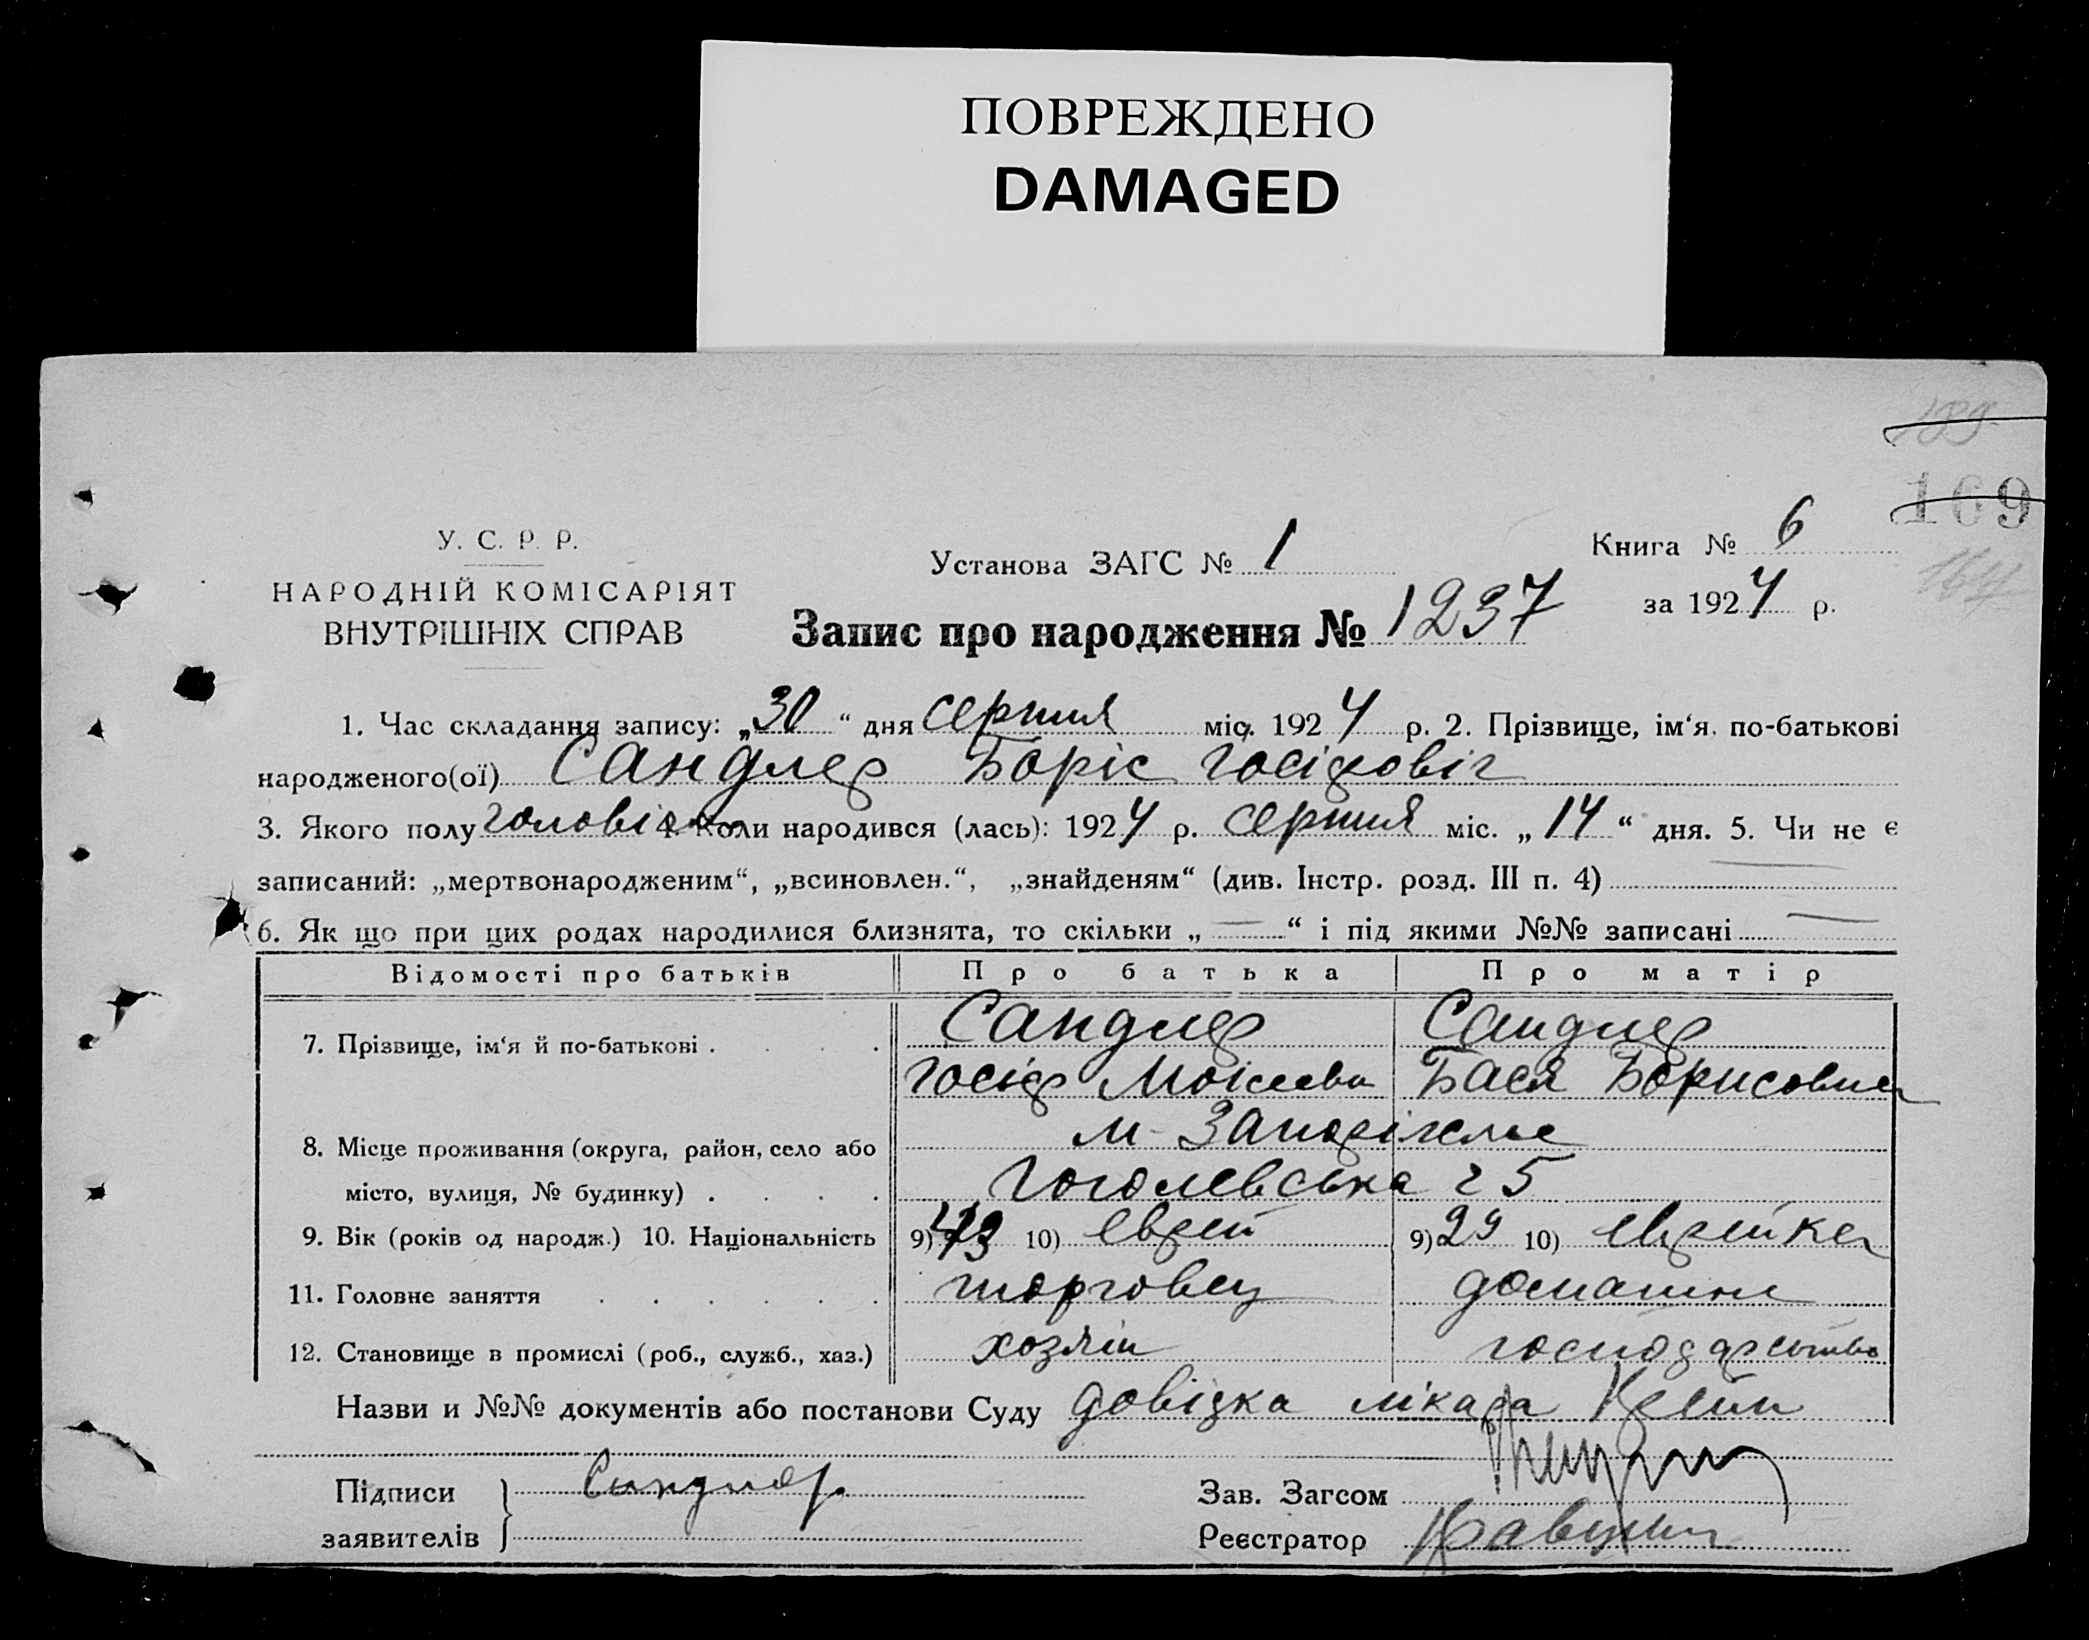 ПОВРЕЖДЕНО
DAMAGED
169
У. С. Р. Р.
НАРОДНІЙ КОМІСАРІЯТ
ВНУТРІШНІХ СПРАВ
Установа ЗАГС № 1
Книга № 6
за 1924 р.
Запис про народження № 1237
1. Час складання запису: „30“ дня серпня міс. 1924 р. 2. Прізвище, ім‘я, по-батькові
народженого(ої) Сандлер Боріс Йосіфовіч
3. Якого полу чоловіч 4. Коли народився (лась): 1924 р. серпня міс. „14“ дня. 5. Чи не є
записаний: „мертвонародженим“, „всиновлен.“, „знайденям“ (див. Інстр. розд. III п. 4)
6. Як що при цих родах народилися близнята, то скільки „—“ і під якими №№ записані —
Відомості про батьків Про батька Про матір
7. Прізвище, ім‘я й по-батькові . . . . Сандлер Сандлер
Йосіф Моісеєви Бася Борисовна
8. Місце проживання (округа, район, село або м- Запоріжже
місто, вулиця, № будинку) . . . . Гоголевська ч 5
9. Вік (років од народж.) 10. Національність 9) 10) еврей 9) 29 10) еврейка
11. Головне заняття . . . . . . торговец домашне
12. Становище в промислі (роб., служб., хаз.) хозяін господарство
Назви и №№ документів або постанови Суду довідка лікаря
Підписи Сандлер
заявителів
Зав. Загсом
Реєстратор